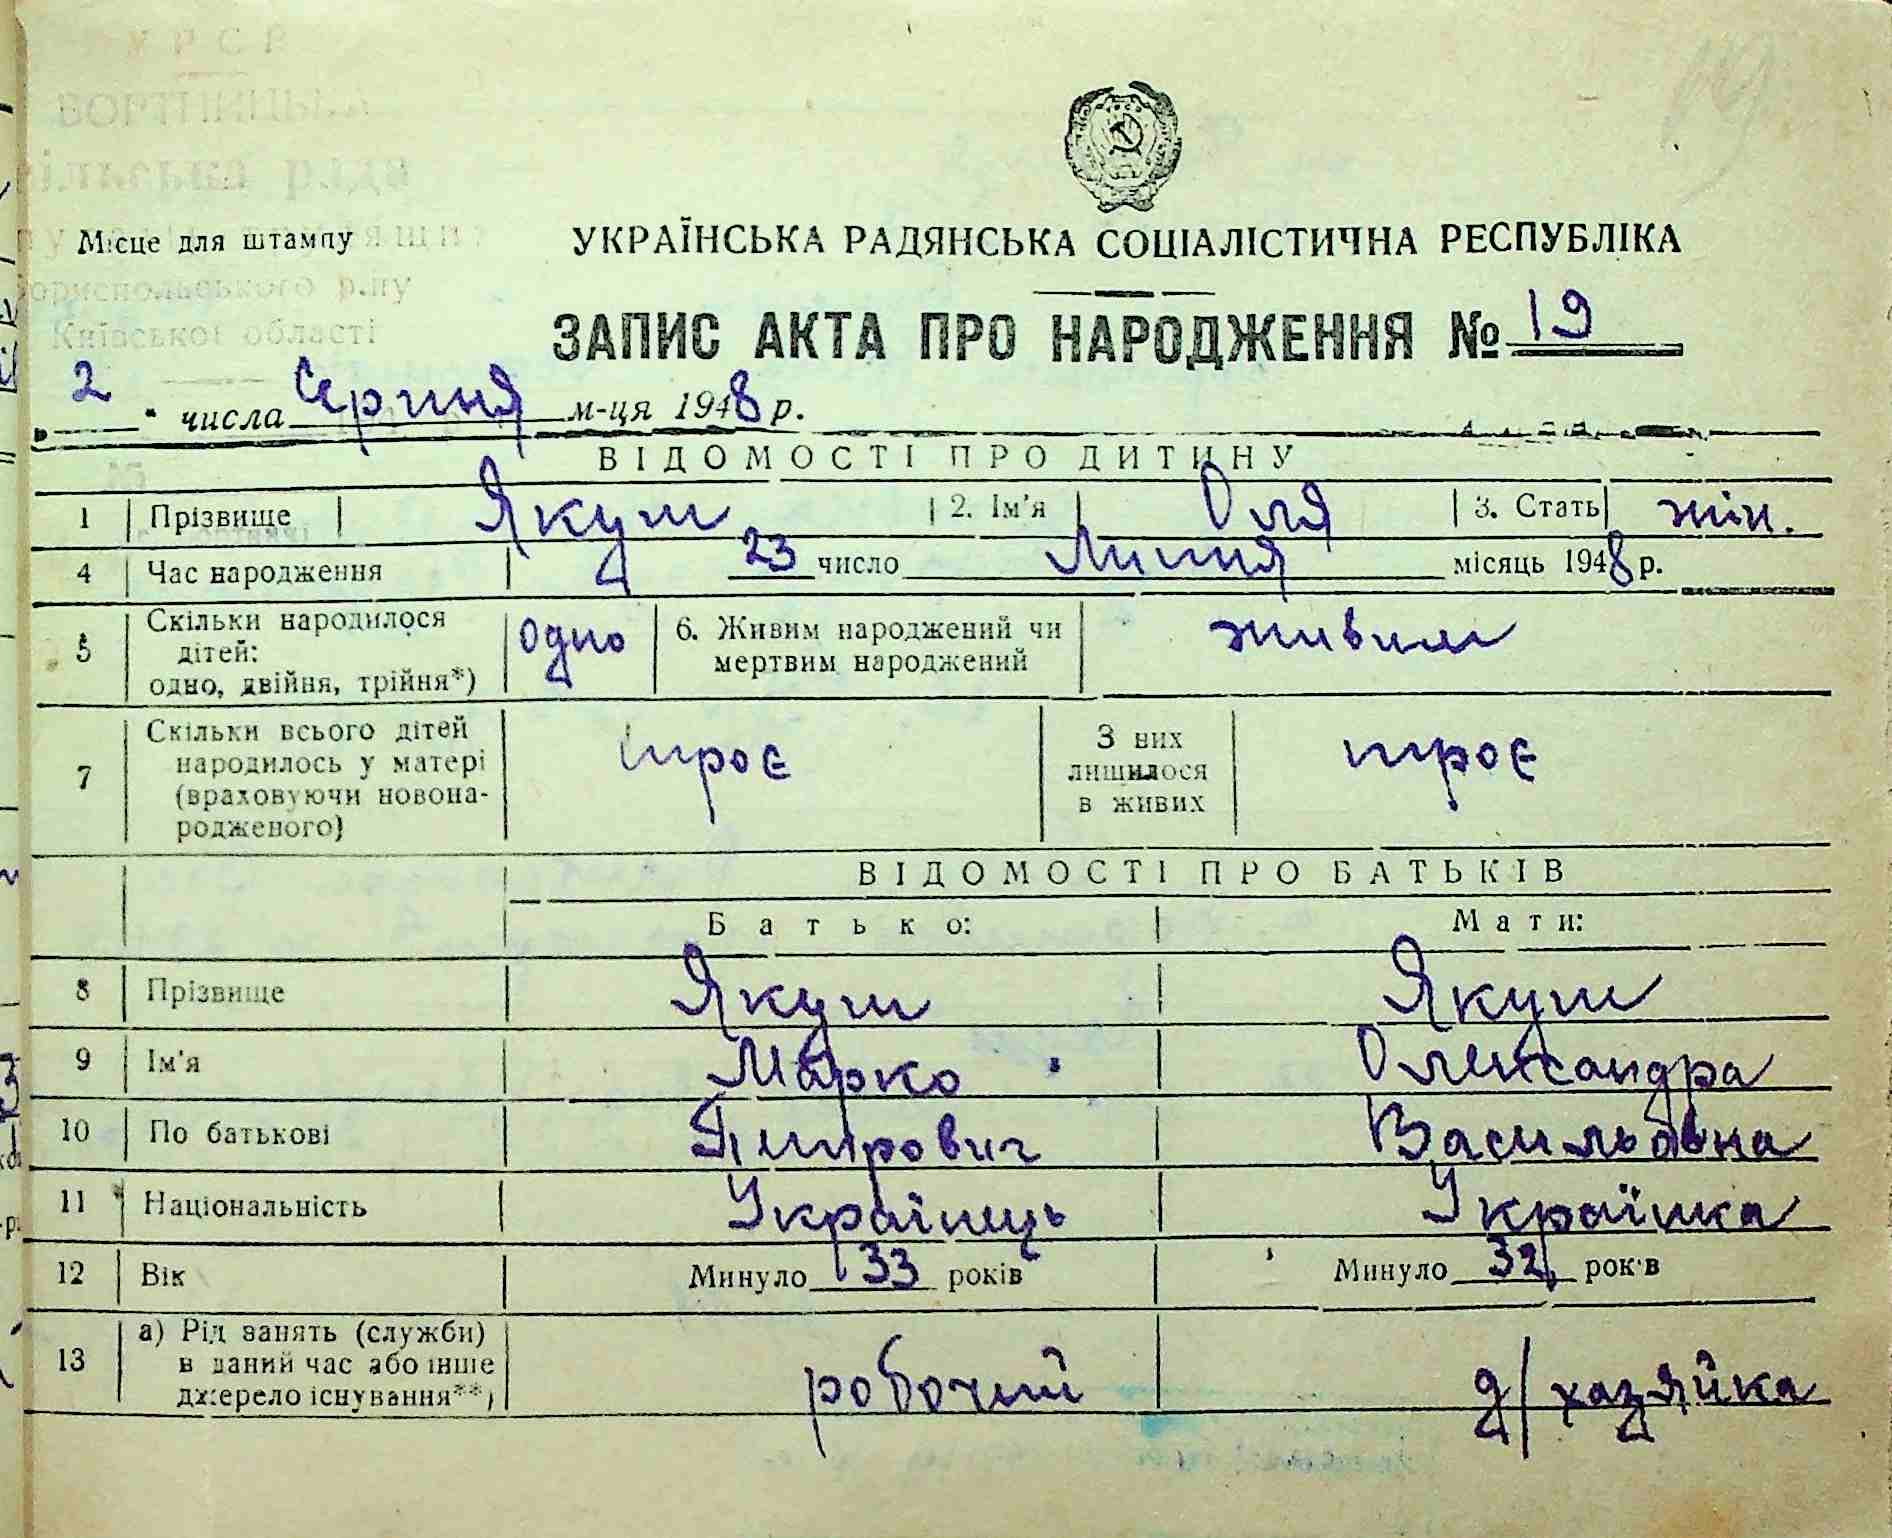 УРСР
БОРТНИЦЬКА
сільська рада
Бориспольського р-ну
Київської області
Місце для штампу
УКРАЇНСЬКА РАДЯНСЬКА СОЦІАЛІСТИЧНА РЕСПУБЛІКА
ЗАПИС АКТА ПРО НАРОДЖЕННЯ № 19
„2" числа Серпня м-ця 1948 р.
ВІДОМОСТІ ПРО ДИТИНУ
1 Прізвище Якуш 2. Ім'я Оля 3. Стать жін.
4 Час народження 23 число Липня місяць 1948 р.
5 Скільки народилося дітей: одно, двійня, трійня*) одно 6. Живим народжений чи мертвим народжений живим
7 Скільки всього дітей народилось у матері (враховуючи новонародженого) троє З них лишилося в живих троє
ВІДОМОСТІ ПРО БАТЬКІВ
Батько: Мати:
8 Прізвище Якуш Якуш
9 Ім'я Марко Олександра
10 По батькові Петрович Васильовна
11 Національність Українець Українка
12 Вік Минуло 33 років Минуло 32 років
13 а) Рід занять (служби) в даний час або інше джерело існування**) робочий д/хазяйка